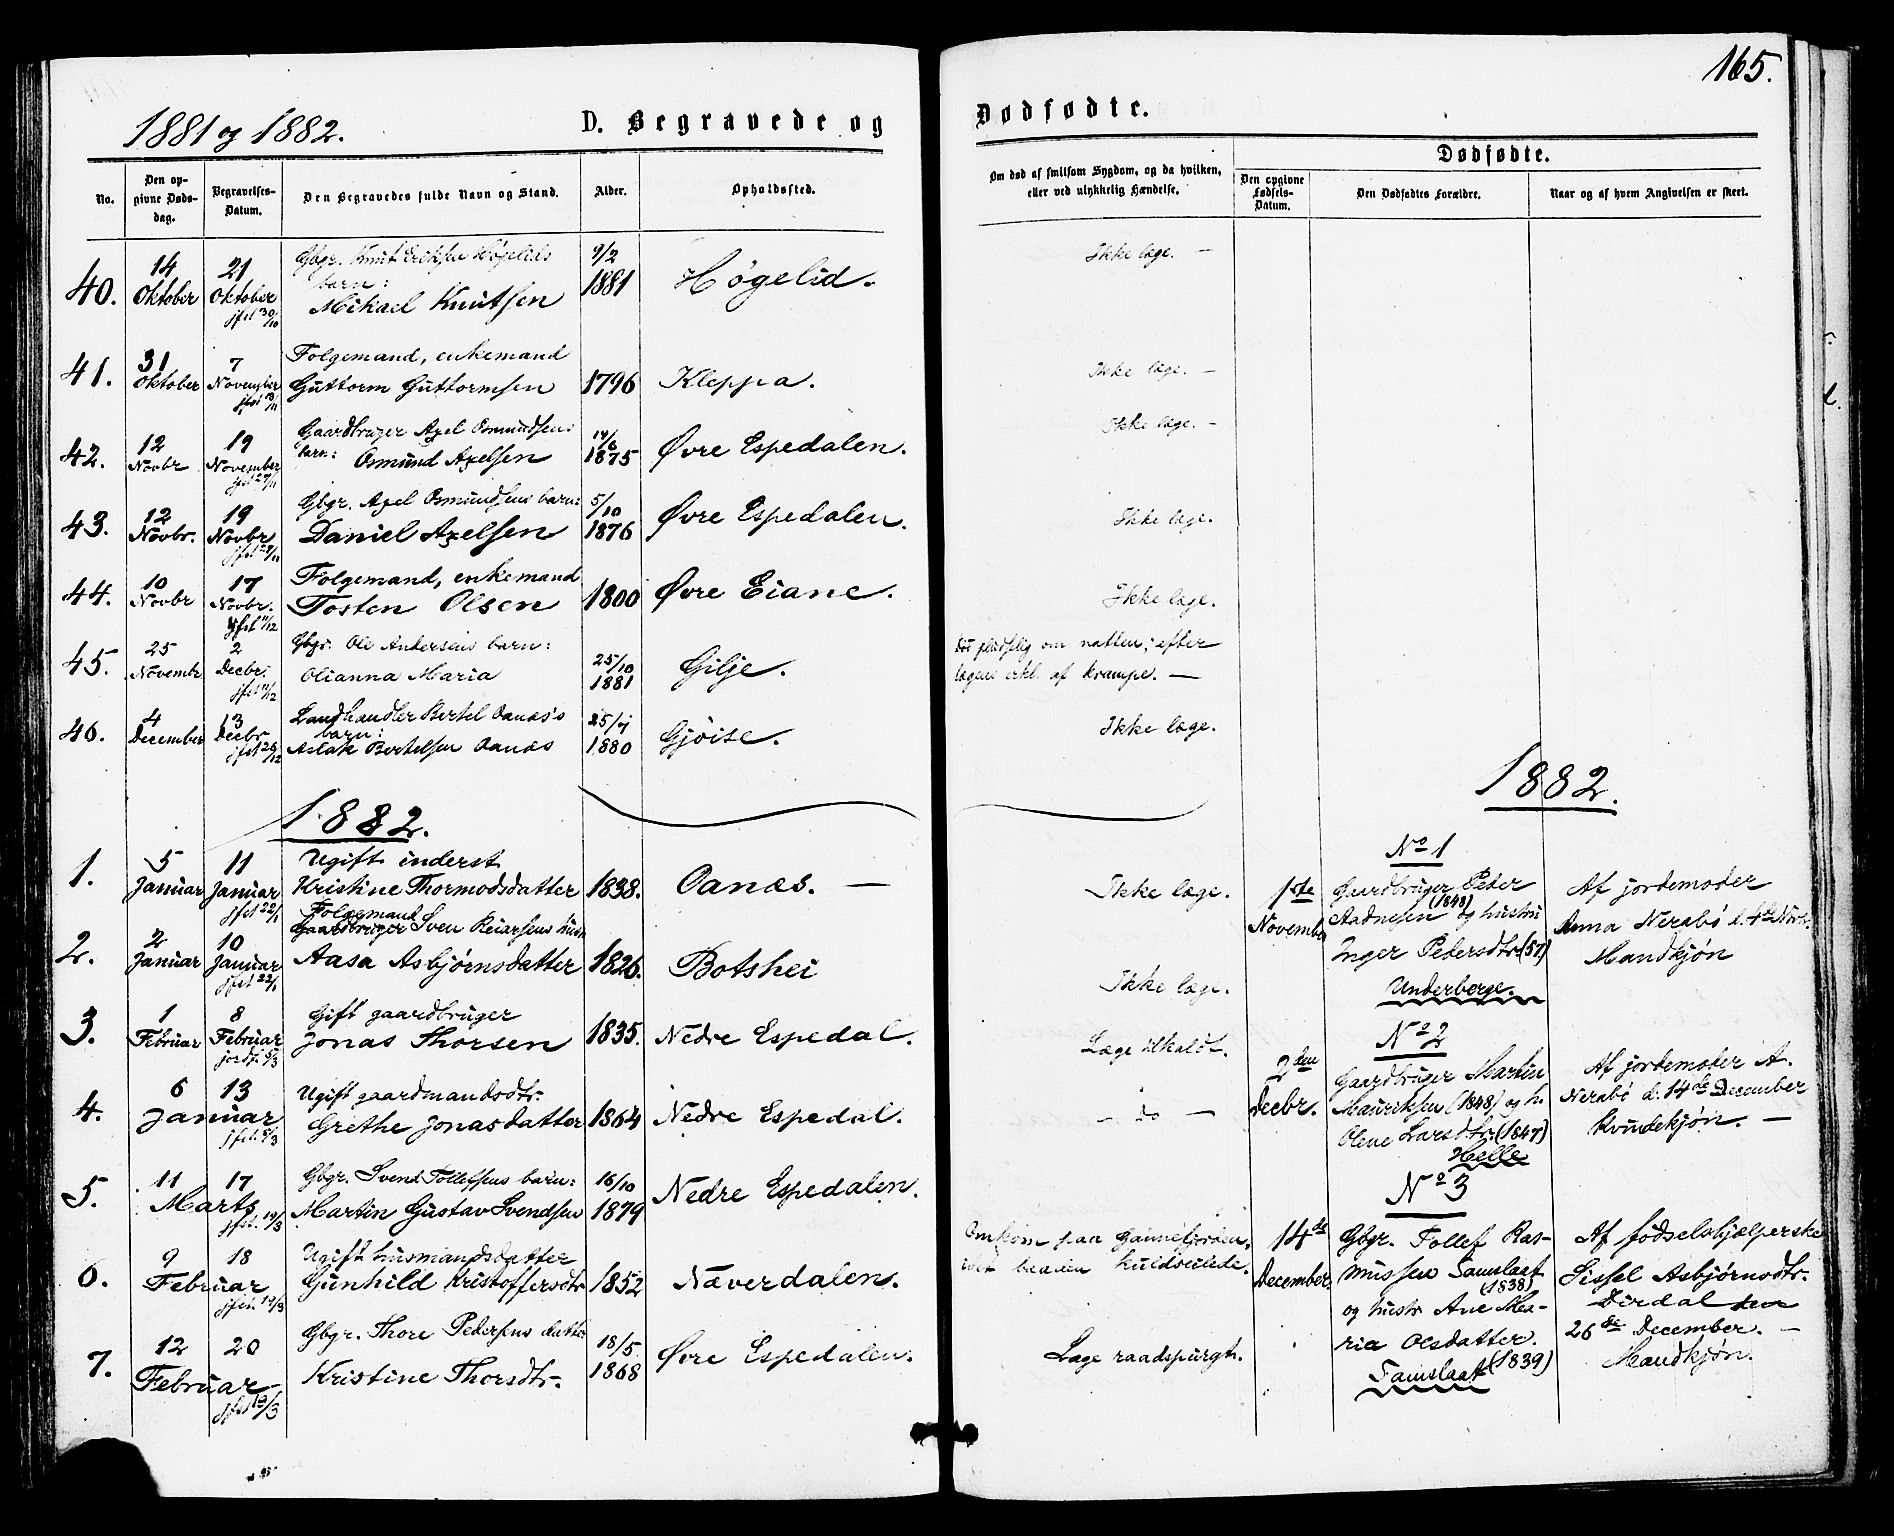 165.
1881 og 1882.
D. Begravede og Dødfødte.
No.
Den opgivne Dødsdag.
Begravelses-Datum.
Den Begravedes fulde Navn og Stand.
Alder.
Opholdssted.
Om død af smitsom Sygdom, og da hvilken, eller ved ulykkelig Hændelse.
Dødfødte.
Den opgivne Fødsels-Datum.
Den Dødfødtes Forældre.
Naar og af hvem Angivelsen er skeet.
40. 14 Oktober 21 Oktober jfst 30/10
Gbgr. Knut Eriksen Høgelids
barn:
Mikael Knutsen
9/2 1881 Høgelid. Ikke læge. —
41. 31 Oktober 7 November jfst 13/11
Folgemand, enkemand
Guttorm Guttormsen 1796 Kleppa. Ikke læge. —
42. 12 Novbr 19 November jfst 27/11
Gaardbruger Axel Osmundsens
barn: Osmund Axelsen
14/6 1875 Øvre Espedalen. Ikke læge. —
43. 12 Novbr. 19 Novbr jfst 27/11
Gbgr. Axel Osmundsens barn:
Daniel Axelsen
5/10 1876 Øvre Espedalen. Ikke læge.
44. 10 Novbr 17 Novbr. jfst 11/12
Folgemand, enkemand
Tosten Olsen 1800 Øvre Eiane. Ikke læge.
45. 25 Novembr 2 Decbr. jfst 11/12
Gbgr. Ole Andersens barn:
Olianna Maria
25/10 1881 Gilje.
Død pludselig om natten; efter
lægens erkl. af krampe. —
46. 4 December 13 Decbr. jfst 26/12
Landhandler Bertel Oanæs's
barn:
Aslak Bertelsen Oanæs
1880 Gjøise. Ikke læge.
1882.
1. 5 Januar 11 Januar jfst 22/1
Ugift inderst
Kristine Thormodsdatter 1838. Oanæs. — Ikke læge.
2. 2 Januar 10 Januar jfst 22/1
Folgemand
Gaardbruger Sven Reiarsens hustr
Aasa Asbjørnsdatter 1826. Botshei Ikke læge.
3. 1 Februar 8 Februar jordf. 5/3
Gift gaardbruger
Jonas Thorsen 1835. Nedre Espedal. Læge tilkaldt.
4. 6 13 Januar jfst. 5/3
Ugift gaardmandsdtr.
Grethe Jonasdatter 1864 Nedre Espedal. — do —
5. 11 17 Marts jfst. 19/3
Gbgr. Svend Tollefsens barn:
Martin Gustav Svendsen
16/10 1879 Nedre Espedalen.
6. 9 18 Februar jfst. 19/3
Ugift husmandsdatter
Gunhild Kristoffersdtr 1852 Næverdalen.
Omkom paa
idet baaden kuldseilede.
7. 12 20 Februar jfst 19/3
Gbgr. Thore Pedersens datter
Kristine Thorsdtr.
18/5 1868 Øvre Espedalen. Læge raadspurgt.
1882.
No 1
1ste November
Gaardbruger Peder
Aadnesen (1848) og hustru
Inger Pedersdtr. (57)
Underberge.
Af jordemoder
Anna Nerabø d. 4de Novbr.
Mandkjøn
No 2
2den Decbr.
Gaardbruger Martin
Mauritsen (1848) og h.
Olene Larsdtr. (1847)
Helle
Af jordemoder A.
Nerabø d. 14de December
Kvindekjøn. —
No 3
14de December.
Gbgr. Tollef Ras-
mussen Tamslaat
(1838)
og hustr. Ane Ma-
ria Olsdatter.
Tamslaat (1839)
Af fødselshjælperske
Sissel Asbjørnsdtr.
Dirdal den
26de December. —
Mandkjøn.